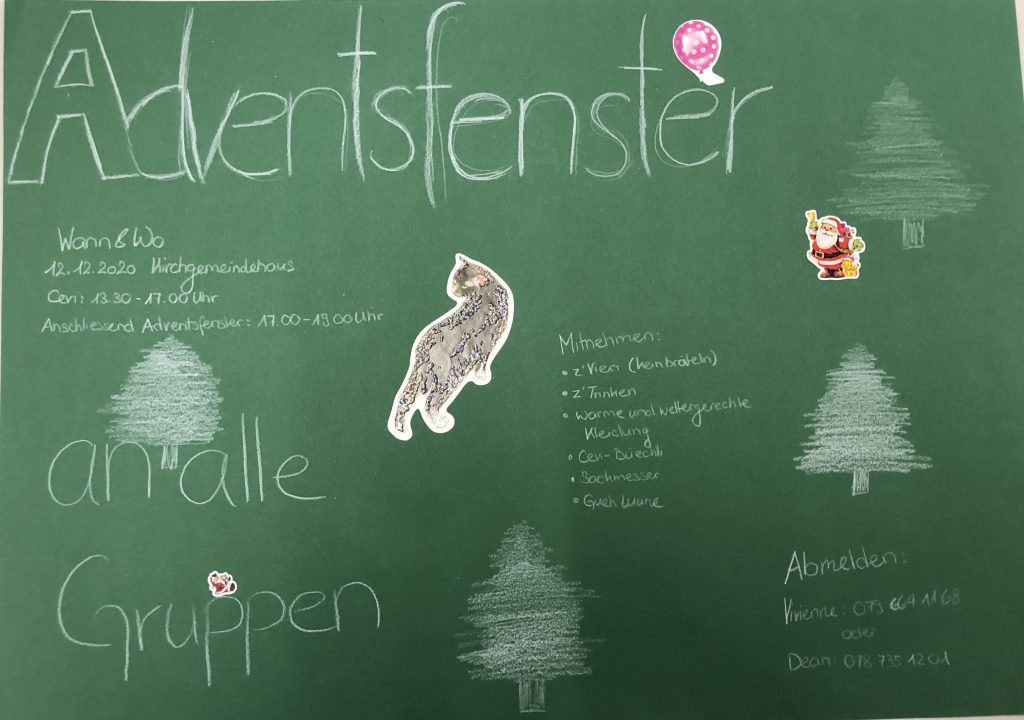 Adventsfenster
Wann & Wo
12.12.2020 Kirchgemeindehaus
Cevi: 13.30 - 17.00 Uhr
Anschliessend Adventsfenster: 17.00 - 19.00 Uhr
an alle
Gruppen
Mitnehmen:
• z'Vieri (kein bräteln)
• z'Trinken
• warme und wettergerechte
Kleidung
• Cevi-Büechli
• Sackmesser
• Gueti Lune
Abmelden:
Vivienne: 079 664 11 68
oder
Dean: 078 735 12 01